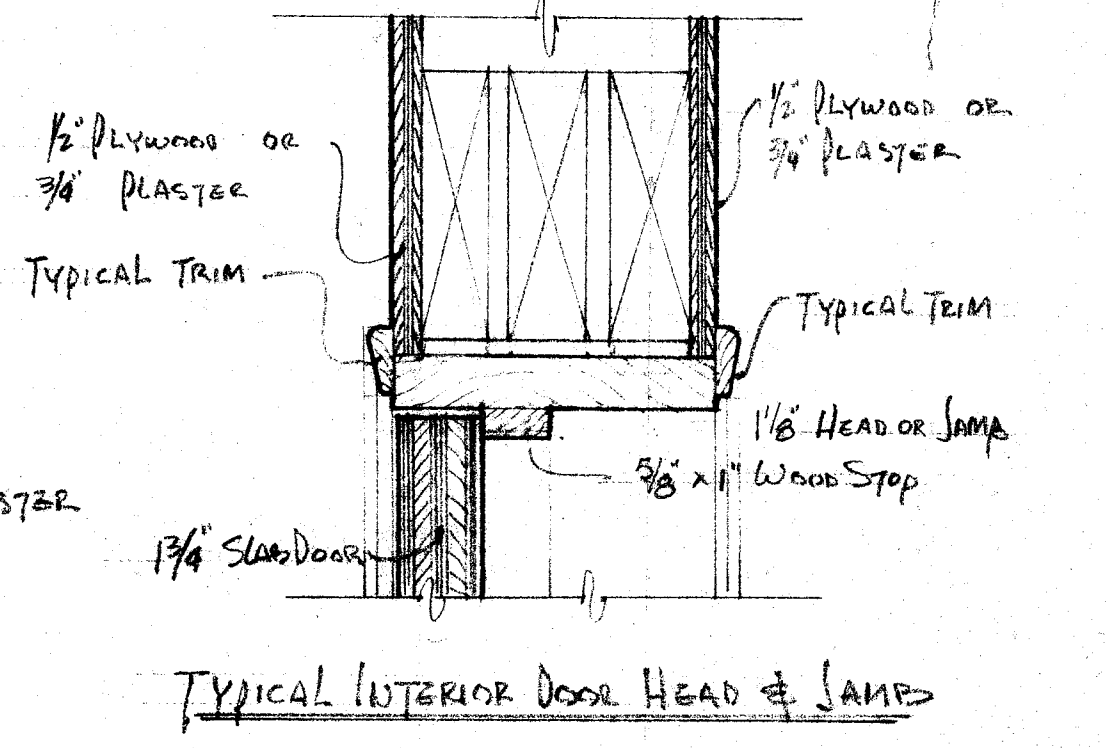 1/2" PLYWOOD OR
3/4" PLASTER
TYPICAL TRIM
1/2" PLYWOOD OR
3/4" PLASTER
TYPICAL TRIM
1 1/8" HEAD OR JAMB
5/8" x 1" WOOD STOP
STER
1 3/4" SLAB DOOR
TYPICAL INTERIOR DOOR HEAD & JAMB